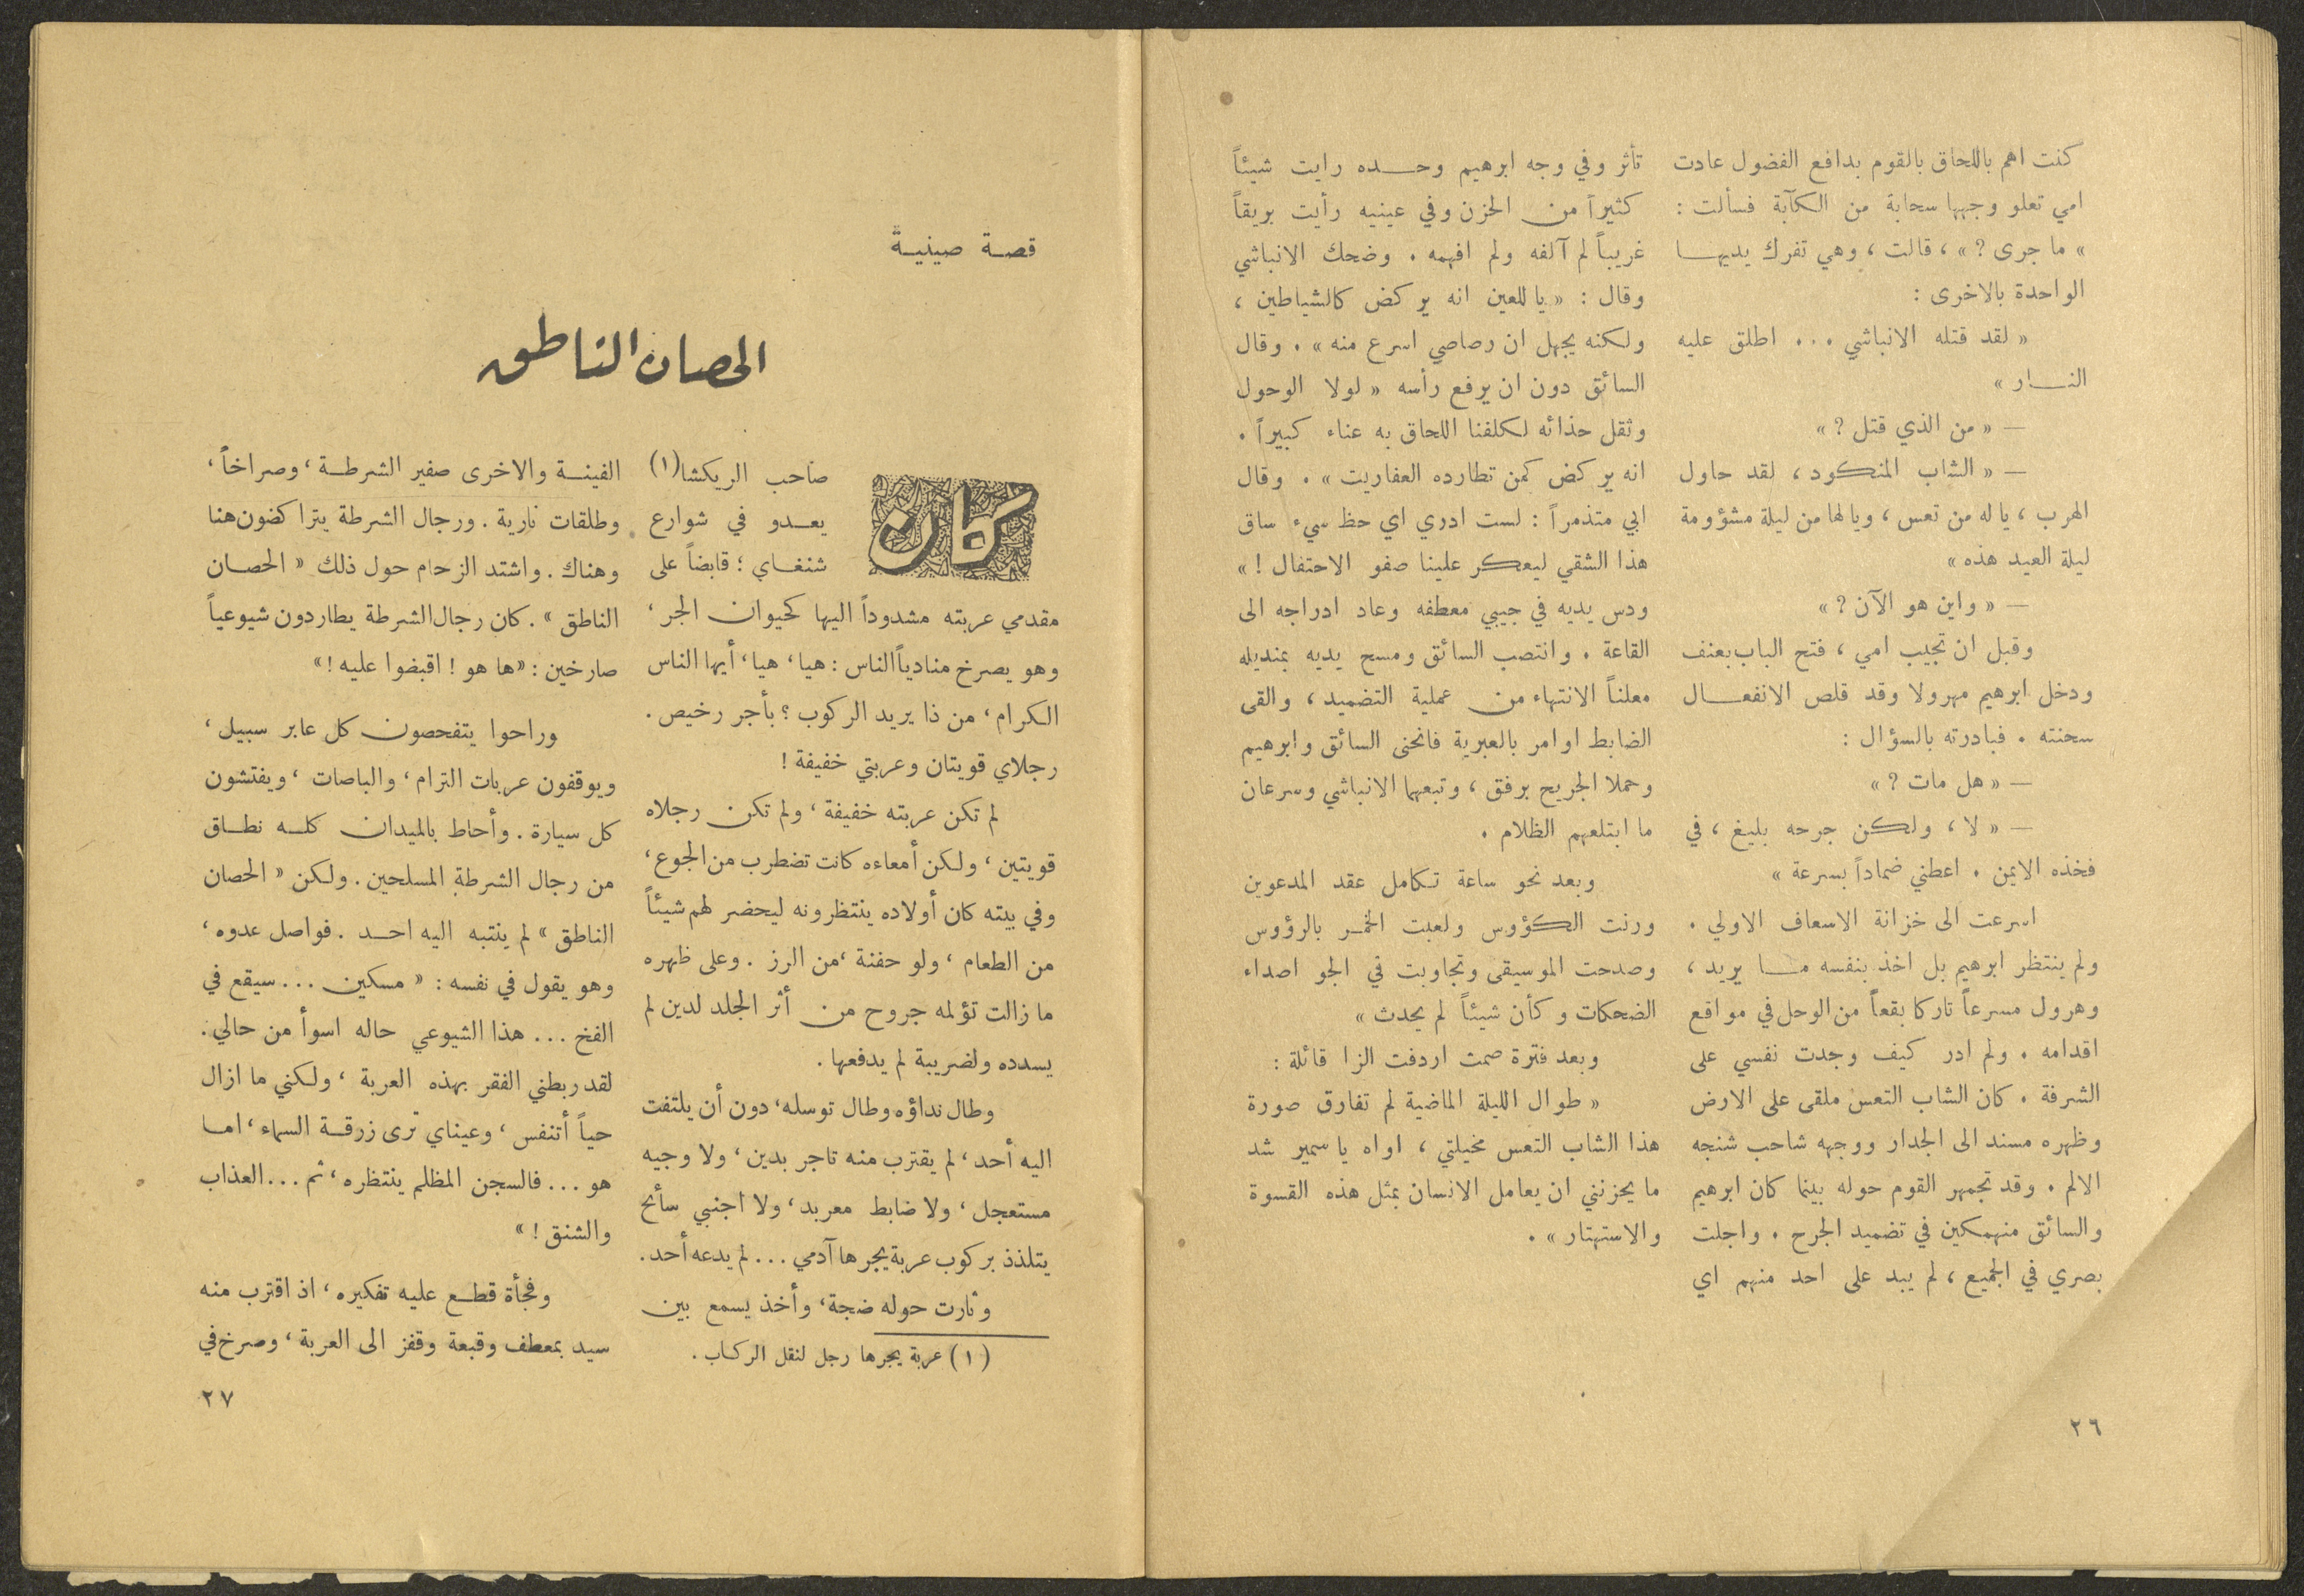 كنت اهم باللحاق بالقوم بدافع الفضول عادت
امي تعلو وجهها سحابة من الكآبة فسألت :
» ما جرى ? » ، قالت ، وهي تفرك يديها
الواحدة بالاخرى :
« لقد قتله الانباشي ... اطلق عليه
النار »
— « من الذي قتل ? »
— « الشاب المنكود ، لقد حاول
الهرب ، ياله من تعس ، ويالها من ليلة مشؤومة
ليلة العيد هذه »
— « واين هو الآن ? »
وقبل ان تجيب امي ، فتح الباب بعنف
ودخل ابرهيم مهرولا وقد قلص الانفعال
سحنته . فبادرته بالسؤال :
— « هل مات ? »
— « لا ، ولكن جرحه بليغ ، في
فخذه الايمن . اعطني ضماداً بسرعة »
اسرعت الى خزانة الاسعاف الاولي .
ولم ينتظر ابرهيم بل اخذ بنفسه ما يريد ،
وهرول مسرعاً تاركا بقعاً من الوحل في مواقع
اقدامه . ولم ادر كيف وجدت نفسي على
الشرفة . كان الشاب التعس ملقى على الارض
وظهره مسند الى الجدار ووجهه شاحب شنجه
الالم . وقد تجمهر القوم حوله بينما كان ابرهيم
والسائق منهمكين في تضميد الجرح . واجلت
بصري في الجميع ، لم يبد على احد منهم اي
تأثر وفي وجه ابرهيم وحده رايت شيئاً
كثيراً من الحزن وفي عينيه رأيت بريقاً
غريباً لم آلفه ولم افهمه . وضحك الانباشي
وقال : « يا للعين انه يركض كالشياطين ،
ولكنه يجهل ان رصاصي اسرع منه » . وقال
السائق دون ان يرفع رأسه « لولا الوحول
وثقل حذائه لكلفنا اللحاق به عناء كبيراً .
انه يركض كمن تطارده العفاريت » . وقال
ابي متذمراً : لست ادري اي حظ سيء ساق
هذا الشقي ليعكر علينا صفو الاحتفال ! »
ودس يديه في جيبي معطفه وعاد ادراجه الى
القاعة . وانتصب السائق ومسح يديه بمنديله
معلناً الانتهاء من عملية التضميد ، والقى
الضابط اوامر بالعبرية فانحنى السائق وابرهيم
وحملا الجريح برفق ، وتبعهما الانباشي وسرعان
ما ابتلعهم الظلام .
وبعد نحو ساعة تكامل عقد المدعوين
ورنت الكؤوس ولعبت الخمر بالرؤوس
وصدحت الموسيقى وتجاوبت في الجو اصداء
الضحكات وكأن شيئاً لم يحدث »
وبعد فترة صمت اردفت الزا قائلة :
« طوال الليلة الماضية لم تفارق صورة
هذا الشاب التعس مخيلتي ، اواه يا سمير شد
ما يحزنني ان يعامل الانسان بمثل هذه القسوة
والاستهتار » .
٢٦
قصة صينية
الحصان الناطق
كان
صاحب الريكشا(١)
يعدو في شوارع
شنغاي ؛ قابضاً على
مقدمي عربته مشدوداً اليها كحيوان الجر ،
وهو يصرخ منادياً الناس : هيا ، هيا ، أيها الناس
الكرام ، من ذا يريد الركوب ؟ بأجر رخيص .
رجلاي قويتان وعربتي خفيفة !
لم تكن عربته خفيفة ، ولم تكن رجلاه
قويتين ، ولكن أمعاءه كانت تضطرب من الجوع ،
وفي بيته كان أولاده ينتظرونه ليحضر لهم شيئاً
من الطعام ، ولو حفنة ،من الرز . وعلى ظهره
ما زالت تؤلمه جروح من أثر الجلد لدين لم
يسدده ولضريبة لم يدفعها .
وطال نداؤه وطال توسله ، دون أن يلتفت
اليه أحد ، لم يقترب منه تاجر بدين ، ولا وجيه
مستعجل ، ولا ضابط معربد ، ولا اجنبي سائح
يتلذذ بركوب عربة يجرها آدمي ... لم يدعه أحد .
وثارت حوله ضجة ، وأخذ يسمع بين
(١) عربة يجرها رجل لنقل الركاب .
الفينة والاخرى صفير الشرطة ، وصراخاً ،
وطلقات نارية . ورجال الشرطة يتراكضون هنا
وهناك . واشتد الزحام حول ذلك « الحصان
الناطق » . كان رجال الشرطة يطاردون شيوعياً
صارخين : « ها هو ! اقبضوا عليه ! »
وراحوا يتفحصون كل عابر سبيل ،
ويوقفون عربات الترام ، والباصات ، ويفتشون
كل سيارة . وأحاط بالميدان كله نطاق
من رجال الشرطة المسلحين . ولكن « الحصان
الناطق » لم ينتبه اليه احد . فواصل عدوه ،
وهو يقول في نفسه : « مسكين ... سيقع في
الفخ ... هذا الشيوعي حاله اسوأ من حالي .
لقد ربطني الفقر بهذه العربة ، ولكني ما ازال
حياً أتنفس ، وعيناي ترى زرقة السماء ، اما
هو ... فالسجن المظلم ينتظره ، ثم ... العذاب
والشنق ! »
وفجأة قطع عليه تفكيره ، اذ اقترب منه
سيد بمعطف وقبعة وقفز الى العربة ، وصرخ في
٢٧